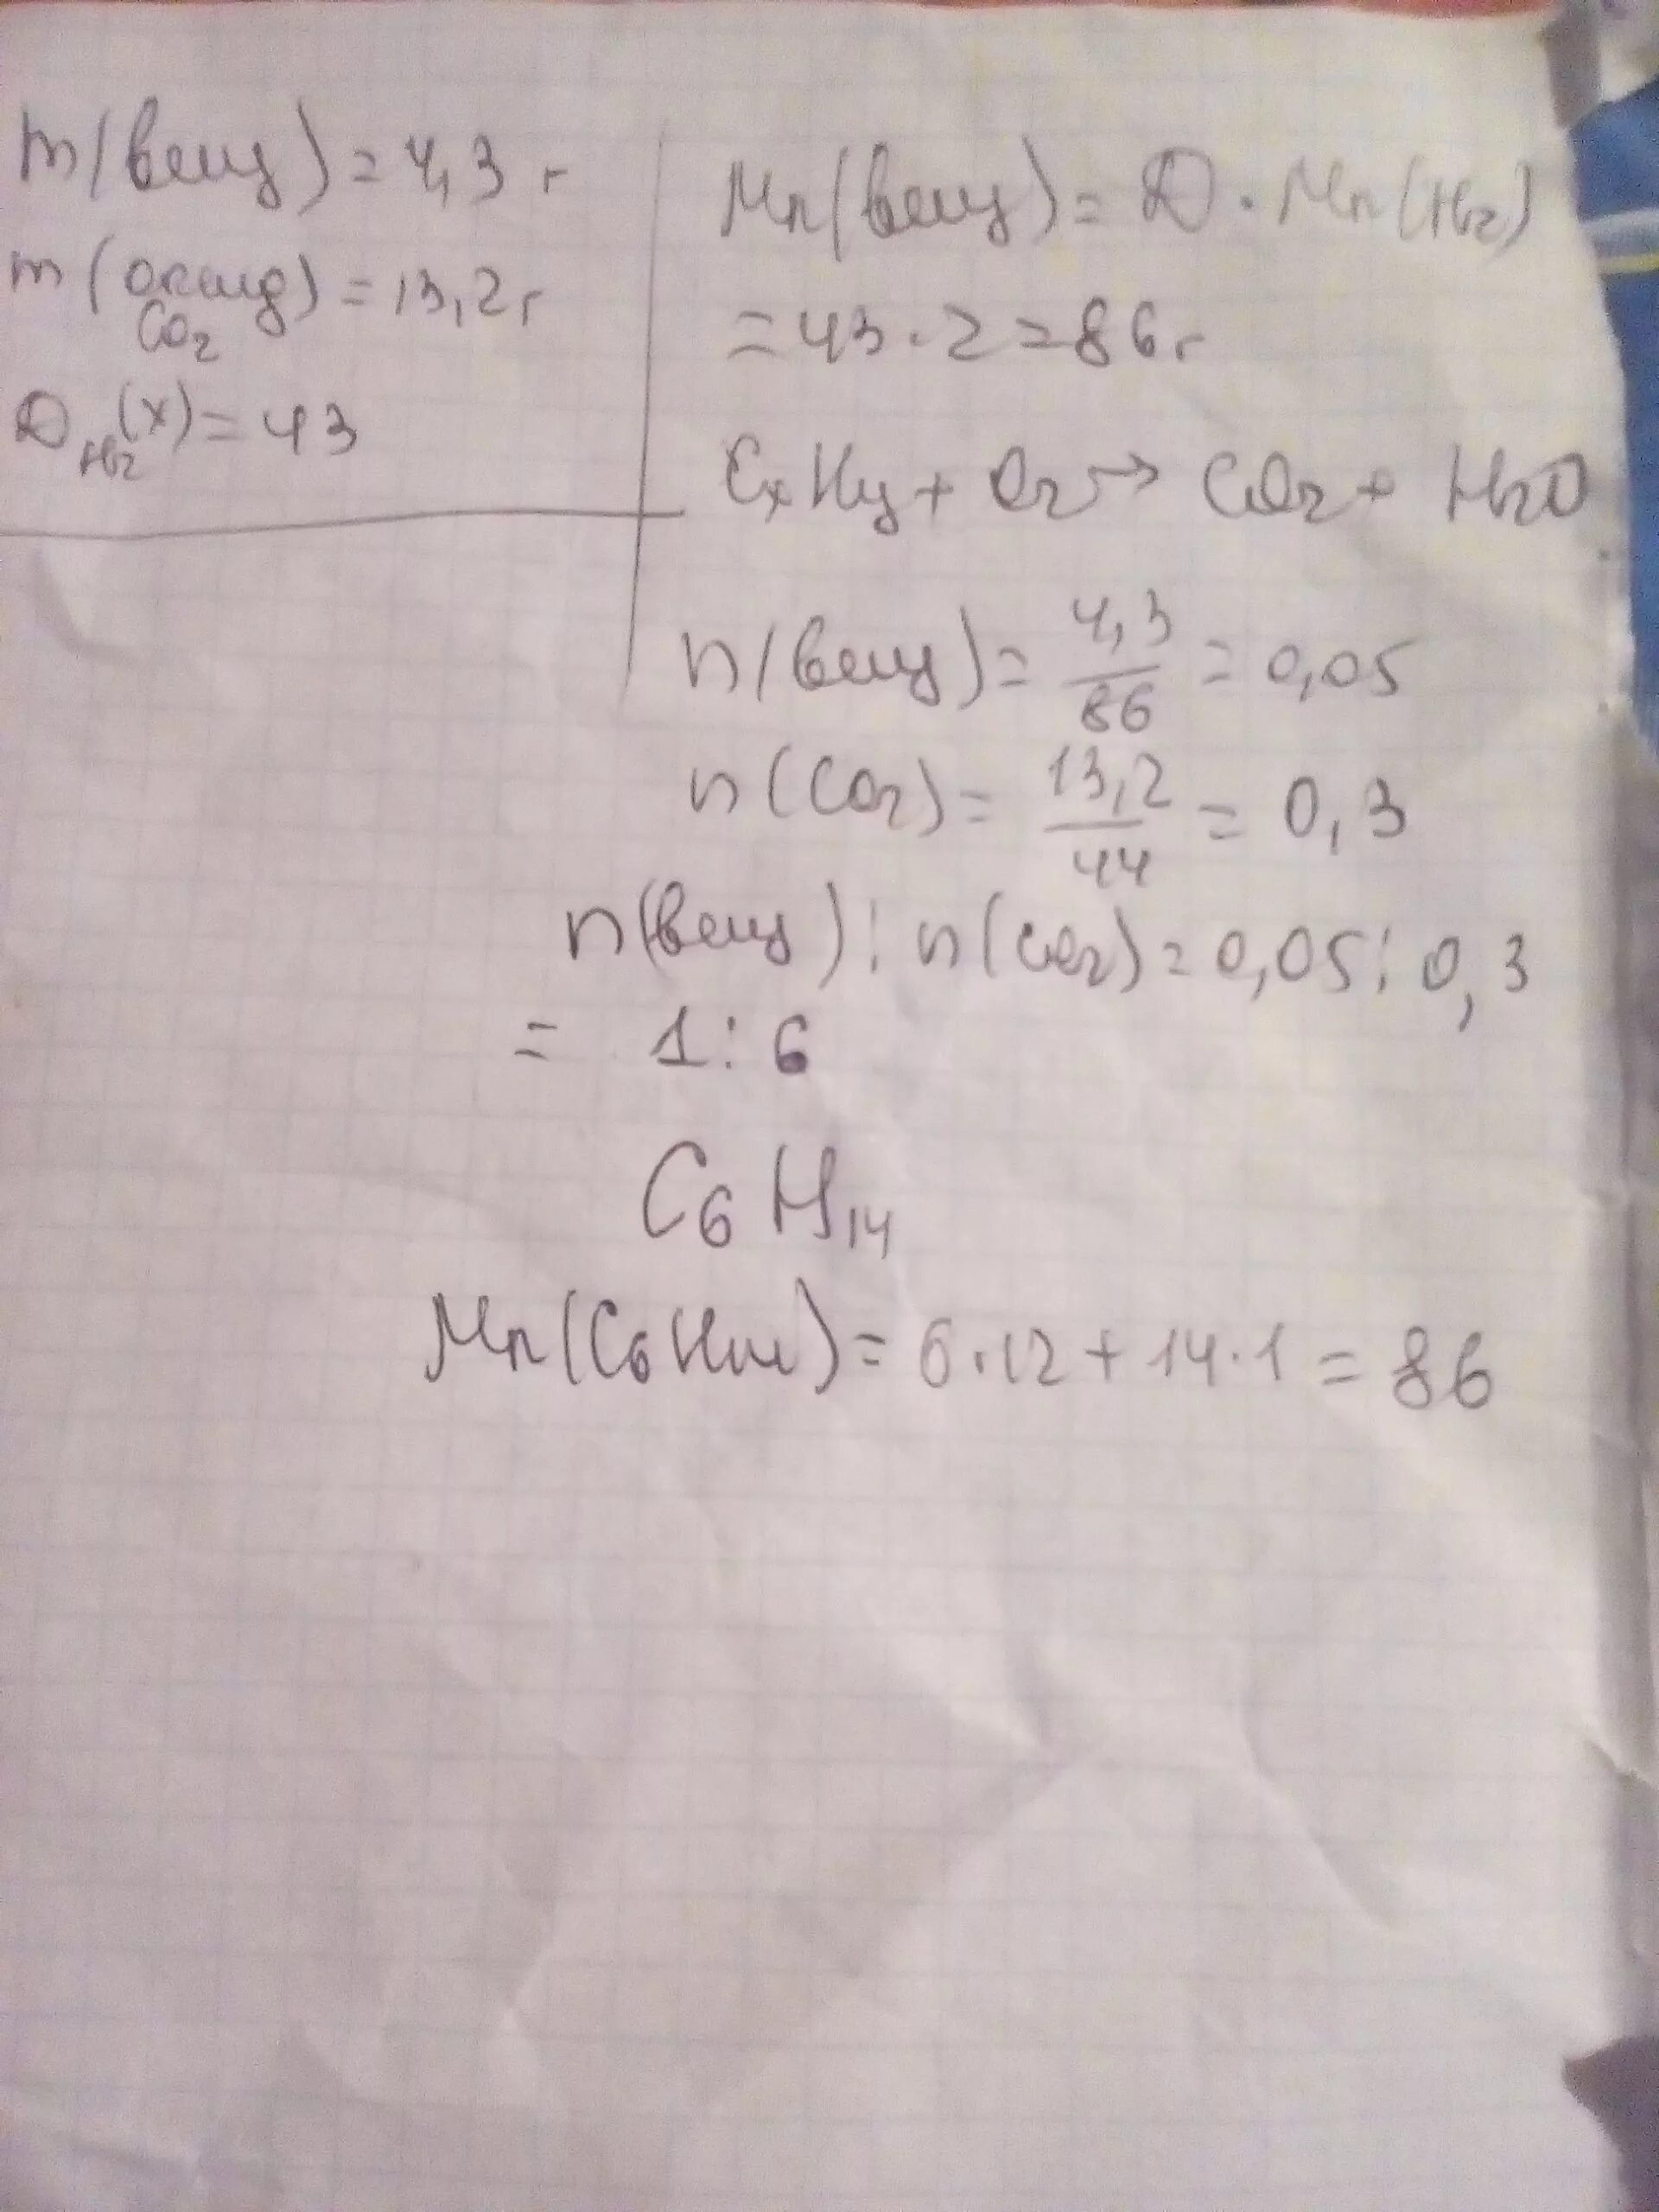 m(вещ) = 4,3 г
m(оксид) = 13,2 г
CO2
D H2 (x) = 43
Mr(вещ) = D · Mr(H2)
= 43 · 2 = 86 г
CxHy + O2 → CO2 + H2O
n(вещ) = 4,3/86 = 0,05
n(CO2) = 13,2/44 = 0,3
n(вещ) : n(CO2) = 0,05 : 0,3
= 1 : 6
C6H14
Mr(C6H14) = 6·12 + 14·1 = 86